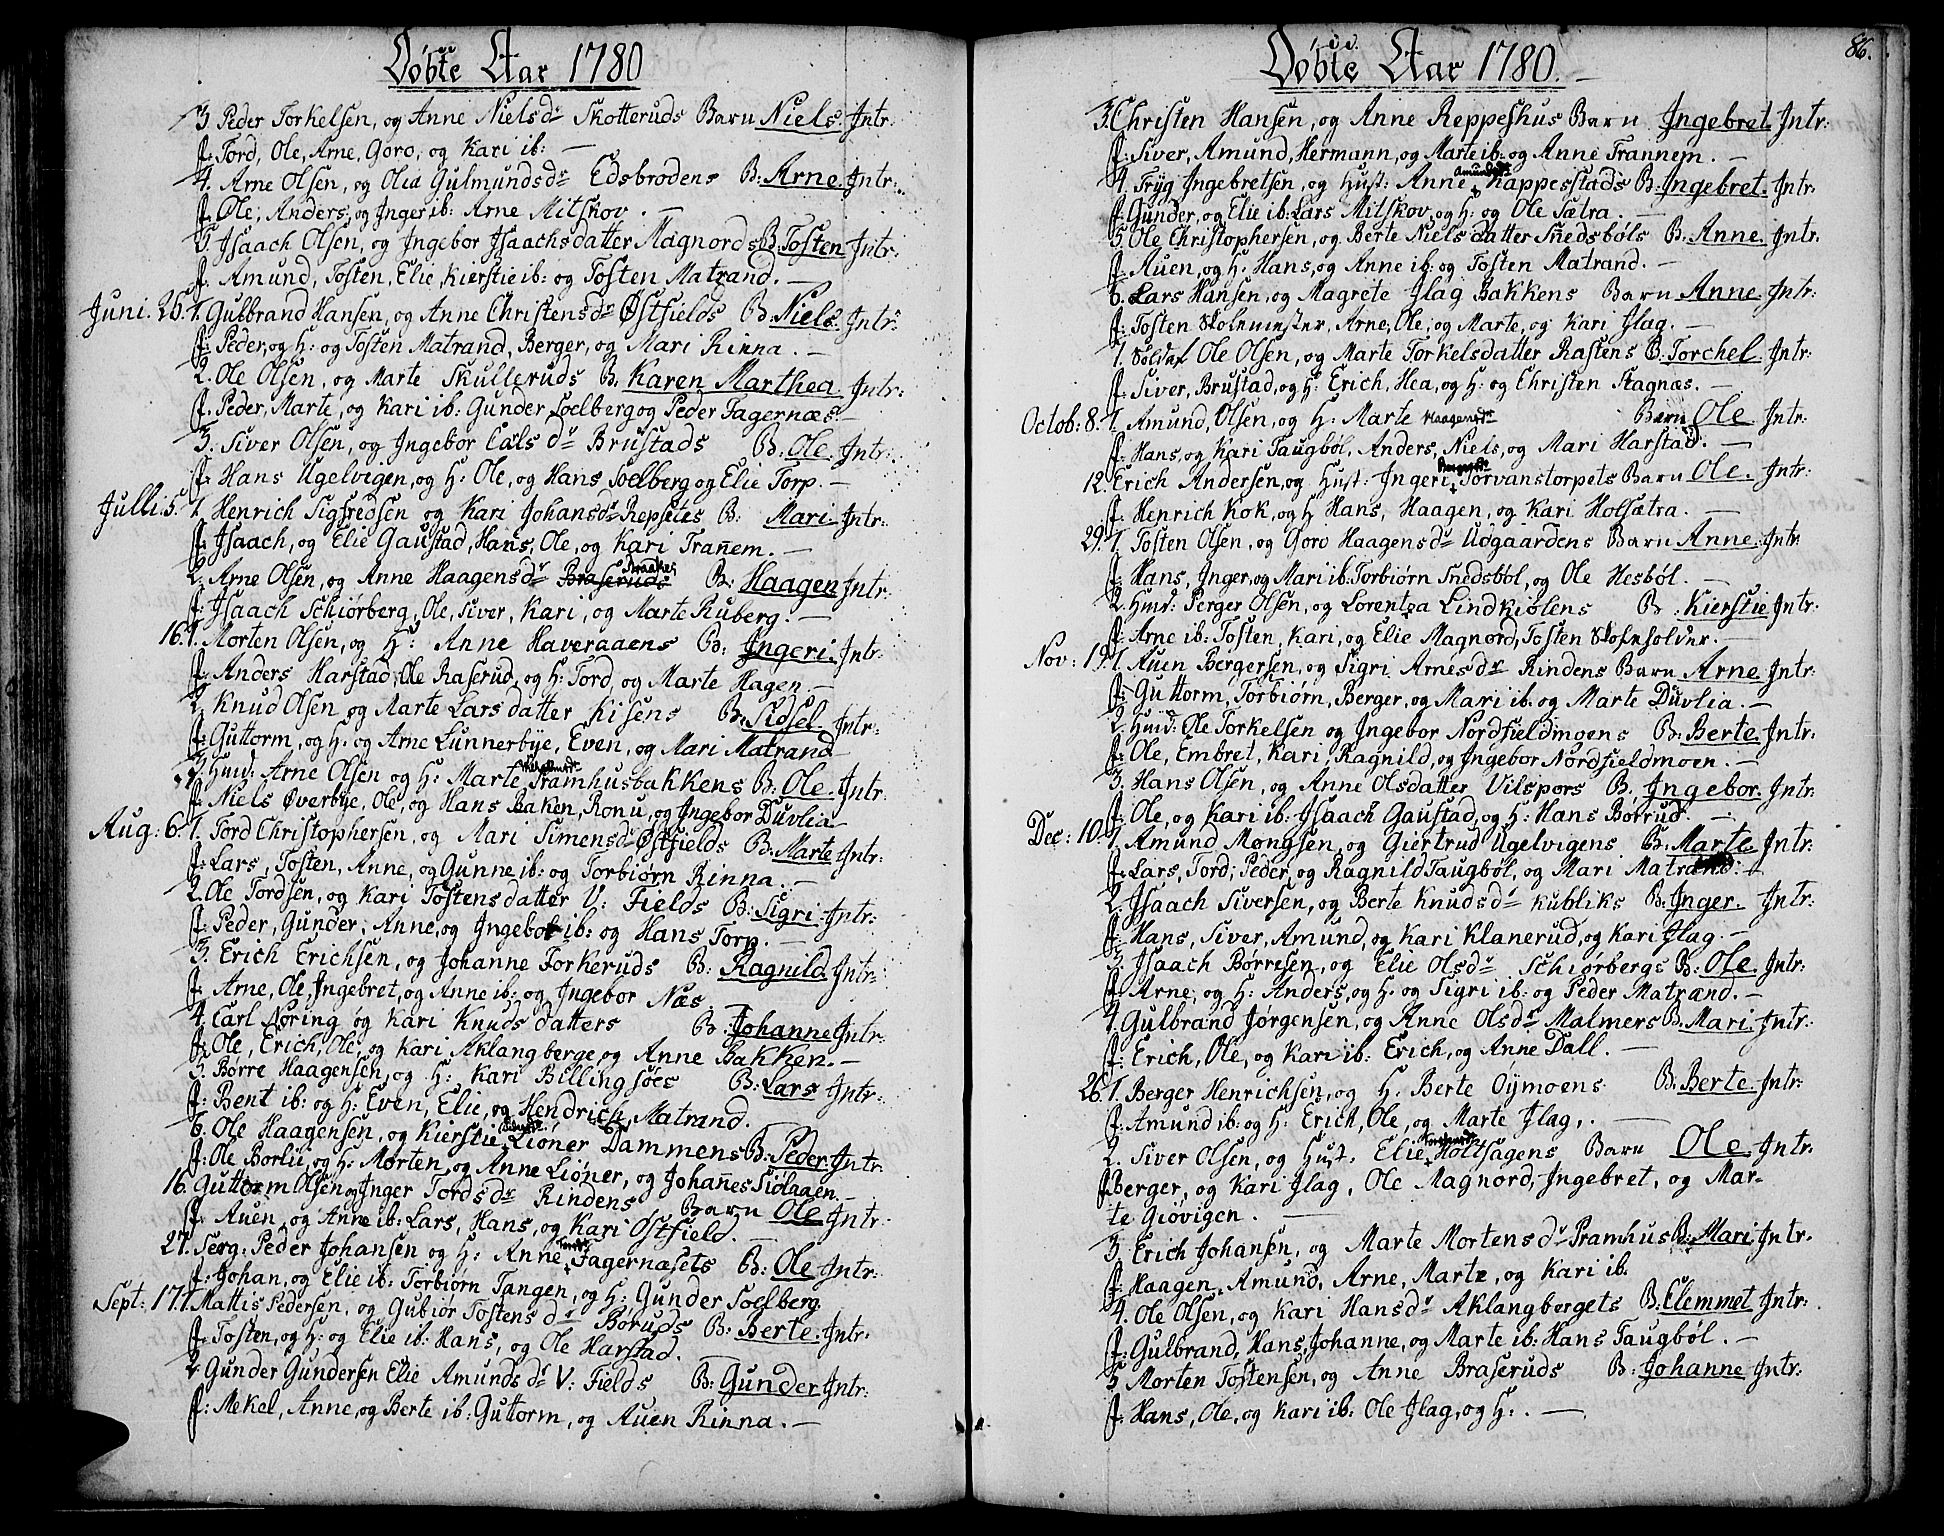 Döbte Aar 1780
3. Peder Torkelsen, og Anne Nielsdr Skotteruds Barn Niels. Intr:
f: Tord, Ole, Arne, Goro, og Kari ib: —
4. Arne Olsen, og Olia Gulmundsdr Edsbrodens B: Arne. Intr:
f: Ole, Anders, og Inger ib: Arne Mitskov. —
5. Isaach Olsen, og Ingebor Isaachsdatter Magnords B. Tosten Intr:
f: Amund, Tosten, Elie, Kierstie ib: og Tosten Matrand. —
Juni. 25. 1. Gulbrand Hansen, og Anne Christensdr Østfields B. Niels. Intr:
f: Peder, og H: og Tosten Matrand, Berger, og Mari Rinna. —
2. Ole Olsen, og Marte Skulleruds B. Karen Marthea. Intr:
f. Peder, Marte, og Kari ib: Gunder Soelberg og Peder Fagernæs. —
3. Siver Olsen, og Ingebor Calsdr Brustads B. Ole. Intr:
f: Hans Ugelvigen, og H: Ole, og Hans Soelberg og Elie Torp. —
Julli. 5. 1. Henrich Sigfredsen og Kari Johansdr Repsetes B: Mari. Intr:
f: Isaach, og Elie Gaustad, Hans, Ole, og Kari Trañem. —
2. Arne Olsen, og Anne Haagensdr Braseruds Braaker B: Haagen Intr:
f: Isaach Schiörberg, Ole, Siver, Kari, og Marte Ruberg. —
16. 1. Morten Olsen, og H: Anne Haveraaens B: Ingeri. Intr:
f: Anders Harstad, Ole Raserud, og H: Tord, og Marte Hagen —
2. Knud Olsen og Marte Larsdatter Kisens B: Sidsel. Intr:
f: Guttorm, og H: og Arne Lunnerbye, Even, og Mari Matrand
3. Hmd: Arne Olsen og H: Marte Tramhusbakkens B: Ole. Intr:
f: Niels Øverbye, Ole, og Hans Baken, Ronu, og Ingebor Duvlia —
Aug: 6. 1. Tord Christophersen, og Mari Simensdr Østfields B: Marte Intr:
f: Lars, Tosten, Anne, og Gunne ib: og Torbiörn Rinna. —
2. Ole Tordsen, og Kari Tostensdatter V: Fields B: Sigri. Intr:
f: Peder, Gunder, Anne, og Ingebor ib: og Hans Torp. —
3. Erich Erichsen, og Johanne Torkeruds B: Ragnild. Intr:
f: Arne, Ole, Ingebret, og Anne ib: og Ingebor Næs. —
4. Carl Nöring og Kari Knudsdatters B: Johanne Intr:
f: Ole, Erich, Ole, og Kari Aklangberge, og Anne Bakken. —
5. Börre Haagensen, og H: Kari Billingsöes B: Lars Intr:
f: Bent ib: og H: Even, Elie, og Hendrich Matrand.
6. Ole Haagensen, og Kierstie Liöner Dammens B: Peder Intr:
f: Ole Borlii, og H: Morten, og Anne Liöner, og Johañes Siölagen. —
16. Guttorm Olsen og Inger Tordsdr Rindens Barn Ole Intr:
f: Auen, og Anne ib: Lars, Hans, og Kari Østfield. —
27. Serg: Peder Johansen og H: Anne Tordsdr Fagernæsets B: Ole Intr:
f: Johan, og Elie ib: Torbiörn Tangen, og H: Gunder Soelberg.
Sept: 17. 1. Mattis Pedersen, og Gubiör Tostensdr Boruds B: Berte. Intr:
f: Tosten, og H: og Elie ib: Hans, og Ole Harstad.
2. Gunder Gundersen Elie Amundsdr V: Fields B: Gunder Intr:
f: Mekel, Anne, og Berte ib: Guttorm, og Auen Rinna. —
Döbte Aar 1780. 86.
3. Christen Hansen, og Anne Reppeshus Barn Ingebret Intr:
f: Siver, Amund, Hermann, og Marte ib: og Anne Trannem. —
4. Tryg Ingebretsen, og Hust: Anne Amundsdr Kappesstads B: Ingebret. Intr:
f: Gunder, og Elie ib: Lars Mitskov, og H: og Ole Sætra. —
5. Ole Christophersen, og Berte Nielsdatter Sñedsböls B: Anne. Intr:
f: Auen, og H: Hans, og Anne ib: og Tosten Matrand. —
6. Lars Hansen, og Magrete Ilag Bakkens Barn Anne. Intr:
f: Tosten Skolemester, Arne, Ole, og Marte, og Kari Ilag. —
7. Soldat Ole Olsen, og Marte Torkelsdatter Rastens B: Torchel Intr:
f: Siver, Brustad, og H: Erich, Hea, og H: og Christen Stagnæs. —
Octob: 8. 1. Amund Olsen, og H: Marte Haagensdr Barn Ole Intr:
f: Hans, og Kari Taugböl, Anders, Niels, og Mari Harstad. —
12. Erich Andersen, og Hust: Ingeri Bergersdr Torvanstorpets Barn Ole. Intr:
f: Henrich Kok, og H Hans, Haagen, og Kari Holsætra. —
29. 1. Tosten Olsen, og Goro Haagensdr Udgaardens Barn Anne. Intr
f: Hans, Inger, og Mari ib: Torbiörn Snedsböl, og Ole Hesböl. —
2. Hmd: Perger Olsen, og Lorentza Lindkiölens B: Kierstie Intr:
f: Arne ib: Tosten, Kari, og Elie Magnord, Tosten Skoleholder. —
Nov: 19. 1. Auen Bergersen, og Sigri Arnesdr Rindens Barn Arne Intr:
f: Guttorm, Torbiörn, Berger, og Mari ib. og Marte Duvlia. —
2. Hmd: Ole Torkelsen og Ingebor Nordfieldmoens B: Berte. Intr:
f: Ole, Embret, Kari, Ragnild, og Ingebor Nordfieldmoen. —
3. Hans Olsen, og Anne Olsdatter Vilspors B. Ingebor. Intr:
f: Ole, og Kari ib: Isaach Gaustad, og H: Hans Börrud. —
Dec: 10. 1. Amund Mongsen, og Giertrud Ugelvigens B: Marte Intr:
f: Lars, Tord, Peder, og Ragnild Taugböl, og Mari Matrand: —
2. Isaach Siversen, og Berte Knudsdr Kubliks B: Inger. Intr:
f: Hans, Siver, Amund, og Kari Klanerud, og Kari Ilag —
3. Isaach Börresen, og Elie Olsdr Schiörbergs B: Ole. Intr:
f: Arne, og H: Anders, og H: og Sigri ib: og Peder Matrænd. —
4. Gulbrand Jörgensen, og Anne Olsdr Malmers B. Mari. Intr:
f: Erich, Ole, og Kari ib: Erich, og Anne Dall. —
26. 1. Berger Henrichsen, og H: Berte Oymoens B: Berte. Intr:
f: Amund ib: og H: Erich, Ole, og Marte Ilag. —
2. Siver Olsen, og Hust. Elie Holtsagens Barn Ole. Intr:
f: Berger, og Kari Ilag, Ole Magnord, Ingebret, og Mar-
te Giövigen. —
3. Erich Johansen, og Marte Mortensdr Pramhus B: Mari. Intr.
f: Haagen, Amund, Arne, Marte, og Kari ib.
4. Ole Olsen, og Kari Hansdr Aklangbergets B: Clemmet Intr:
f: Gulbrand, Hans, Johanne, og Marte ib: Hans Taugböl. —
5. Morten Tostensen, og Anne Braseruds B: Johanne Intr:
f: Hans, Ole, og Kari ib: Ole Ilag, og H: —